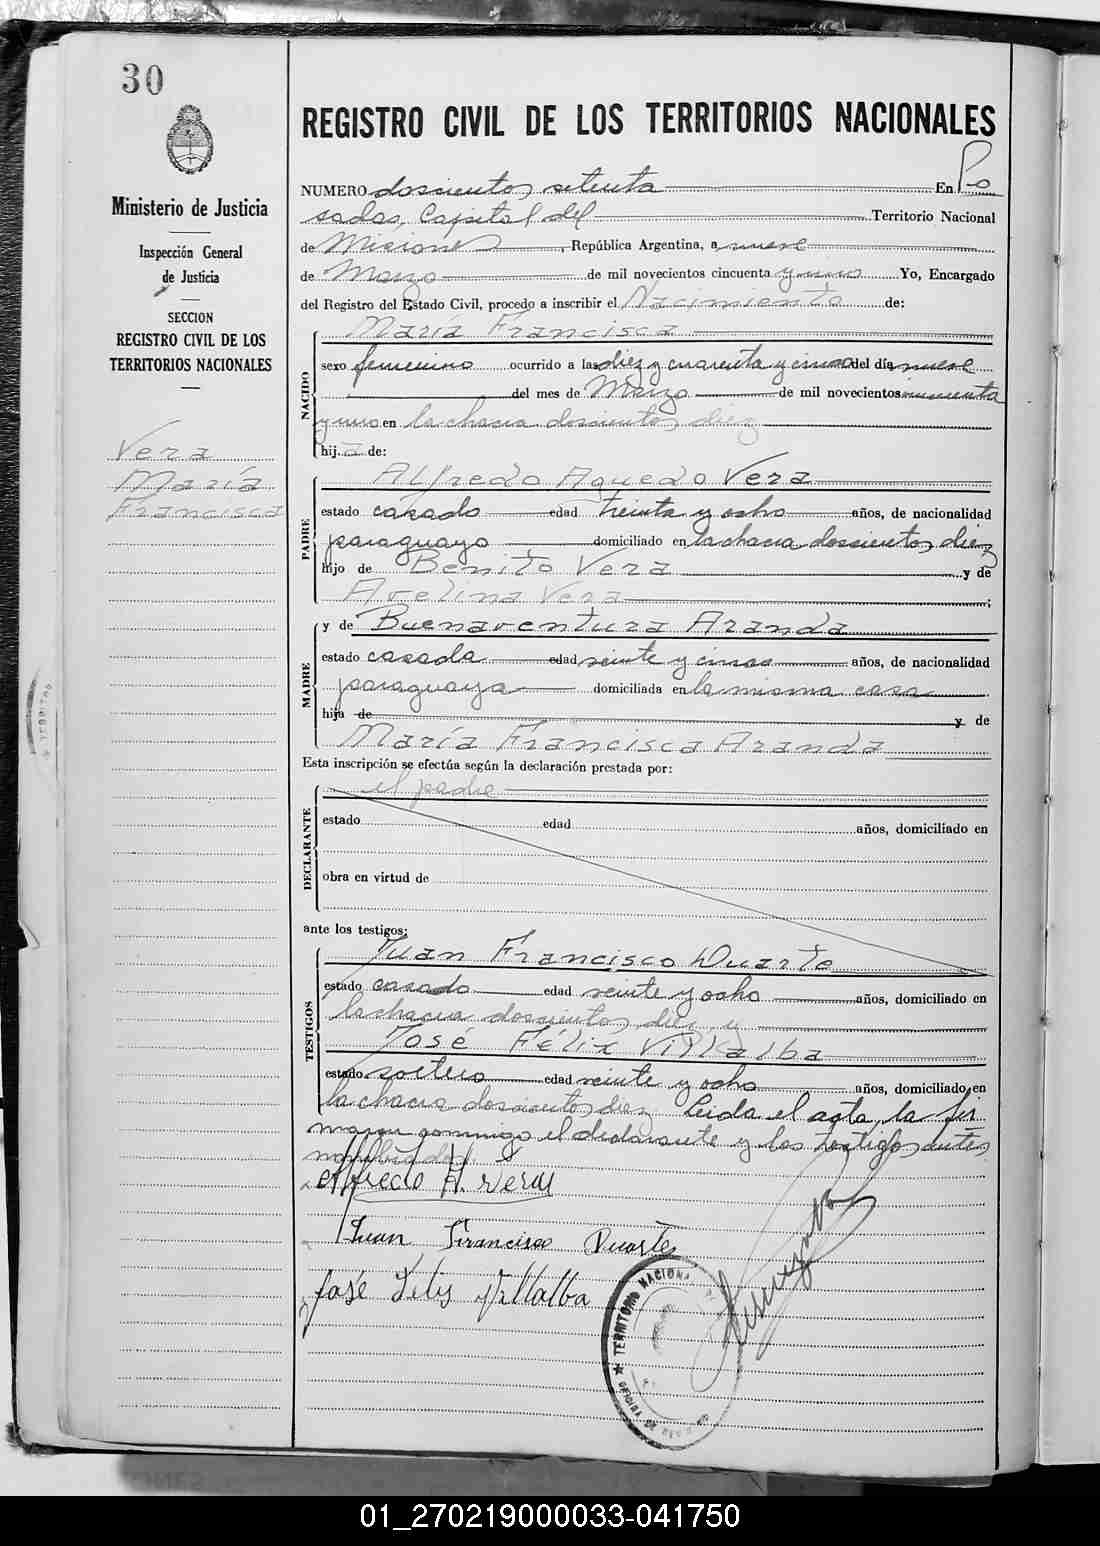 30
Ministerio de Justicia
Inspección General
de Justicia
SECCION
REGISTRO CIVIL DE LOS
TERRITORIOS NACIONALES
Vera
María
Francisca
REGISTRO CIVIL DE LOS TERRITORIOS NACIONALES
NUMERO doscientos setenta En Po
sadas, Capital del Territorio Nacional
de Misiones, República Argentina, a nueve
de Marzo de mil novecientos cincuenta y uno Yo, Encargado
del Registro del Estado Civil, procedo a inscribir el Nacimiento de:
NACIDO
María Francisca
sexo femenino ocurrido a las diez y cuarenta y cinco del día nueve
del mes de Marzo de mil novecientos cincuenta
y uno en la chacra doscientos diez
hija de:
PADRE
Alfredo Aguedo Vera
estado casado edad treinta y ocho años, de nacionalidad
paraguayo domiciliado en la chacra doscientos diez
hijo de Benito Vera y de
Avelina Vera;
MADRE
y de Buenaventura Aranda
estado casada edad veinte y cinco años, de nacionalidad
paraguaya domiciliada en la misma casa
hija de y de
María Francisca Aranda
Esta inscripción se efectúa según la declaración prestada por:
DECLARANTE
el padre
estado edad años, domiciliado en
obra en virtud de
ante los testigos:
TESTIGOS
Juan Francisco Duarte
estado casado edad veinte y ocho años, domiciliado en
la chacra doscientos diez y
José Félix Villalba
estado soltero edad veinte y ocho años, domiciliado en
la chacra doscientos diez Leida el acta, la fir
man conmigo el declarante y los testigos antes
nombrados
Alfredo A. Vera
Juan Francisco Duarte
José Felis Villalba
TERRITORIO NACIONAL
01_270219000033-041750